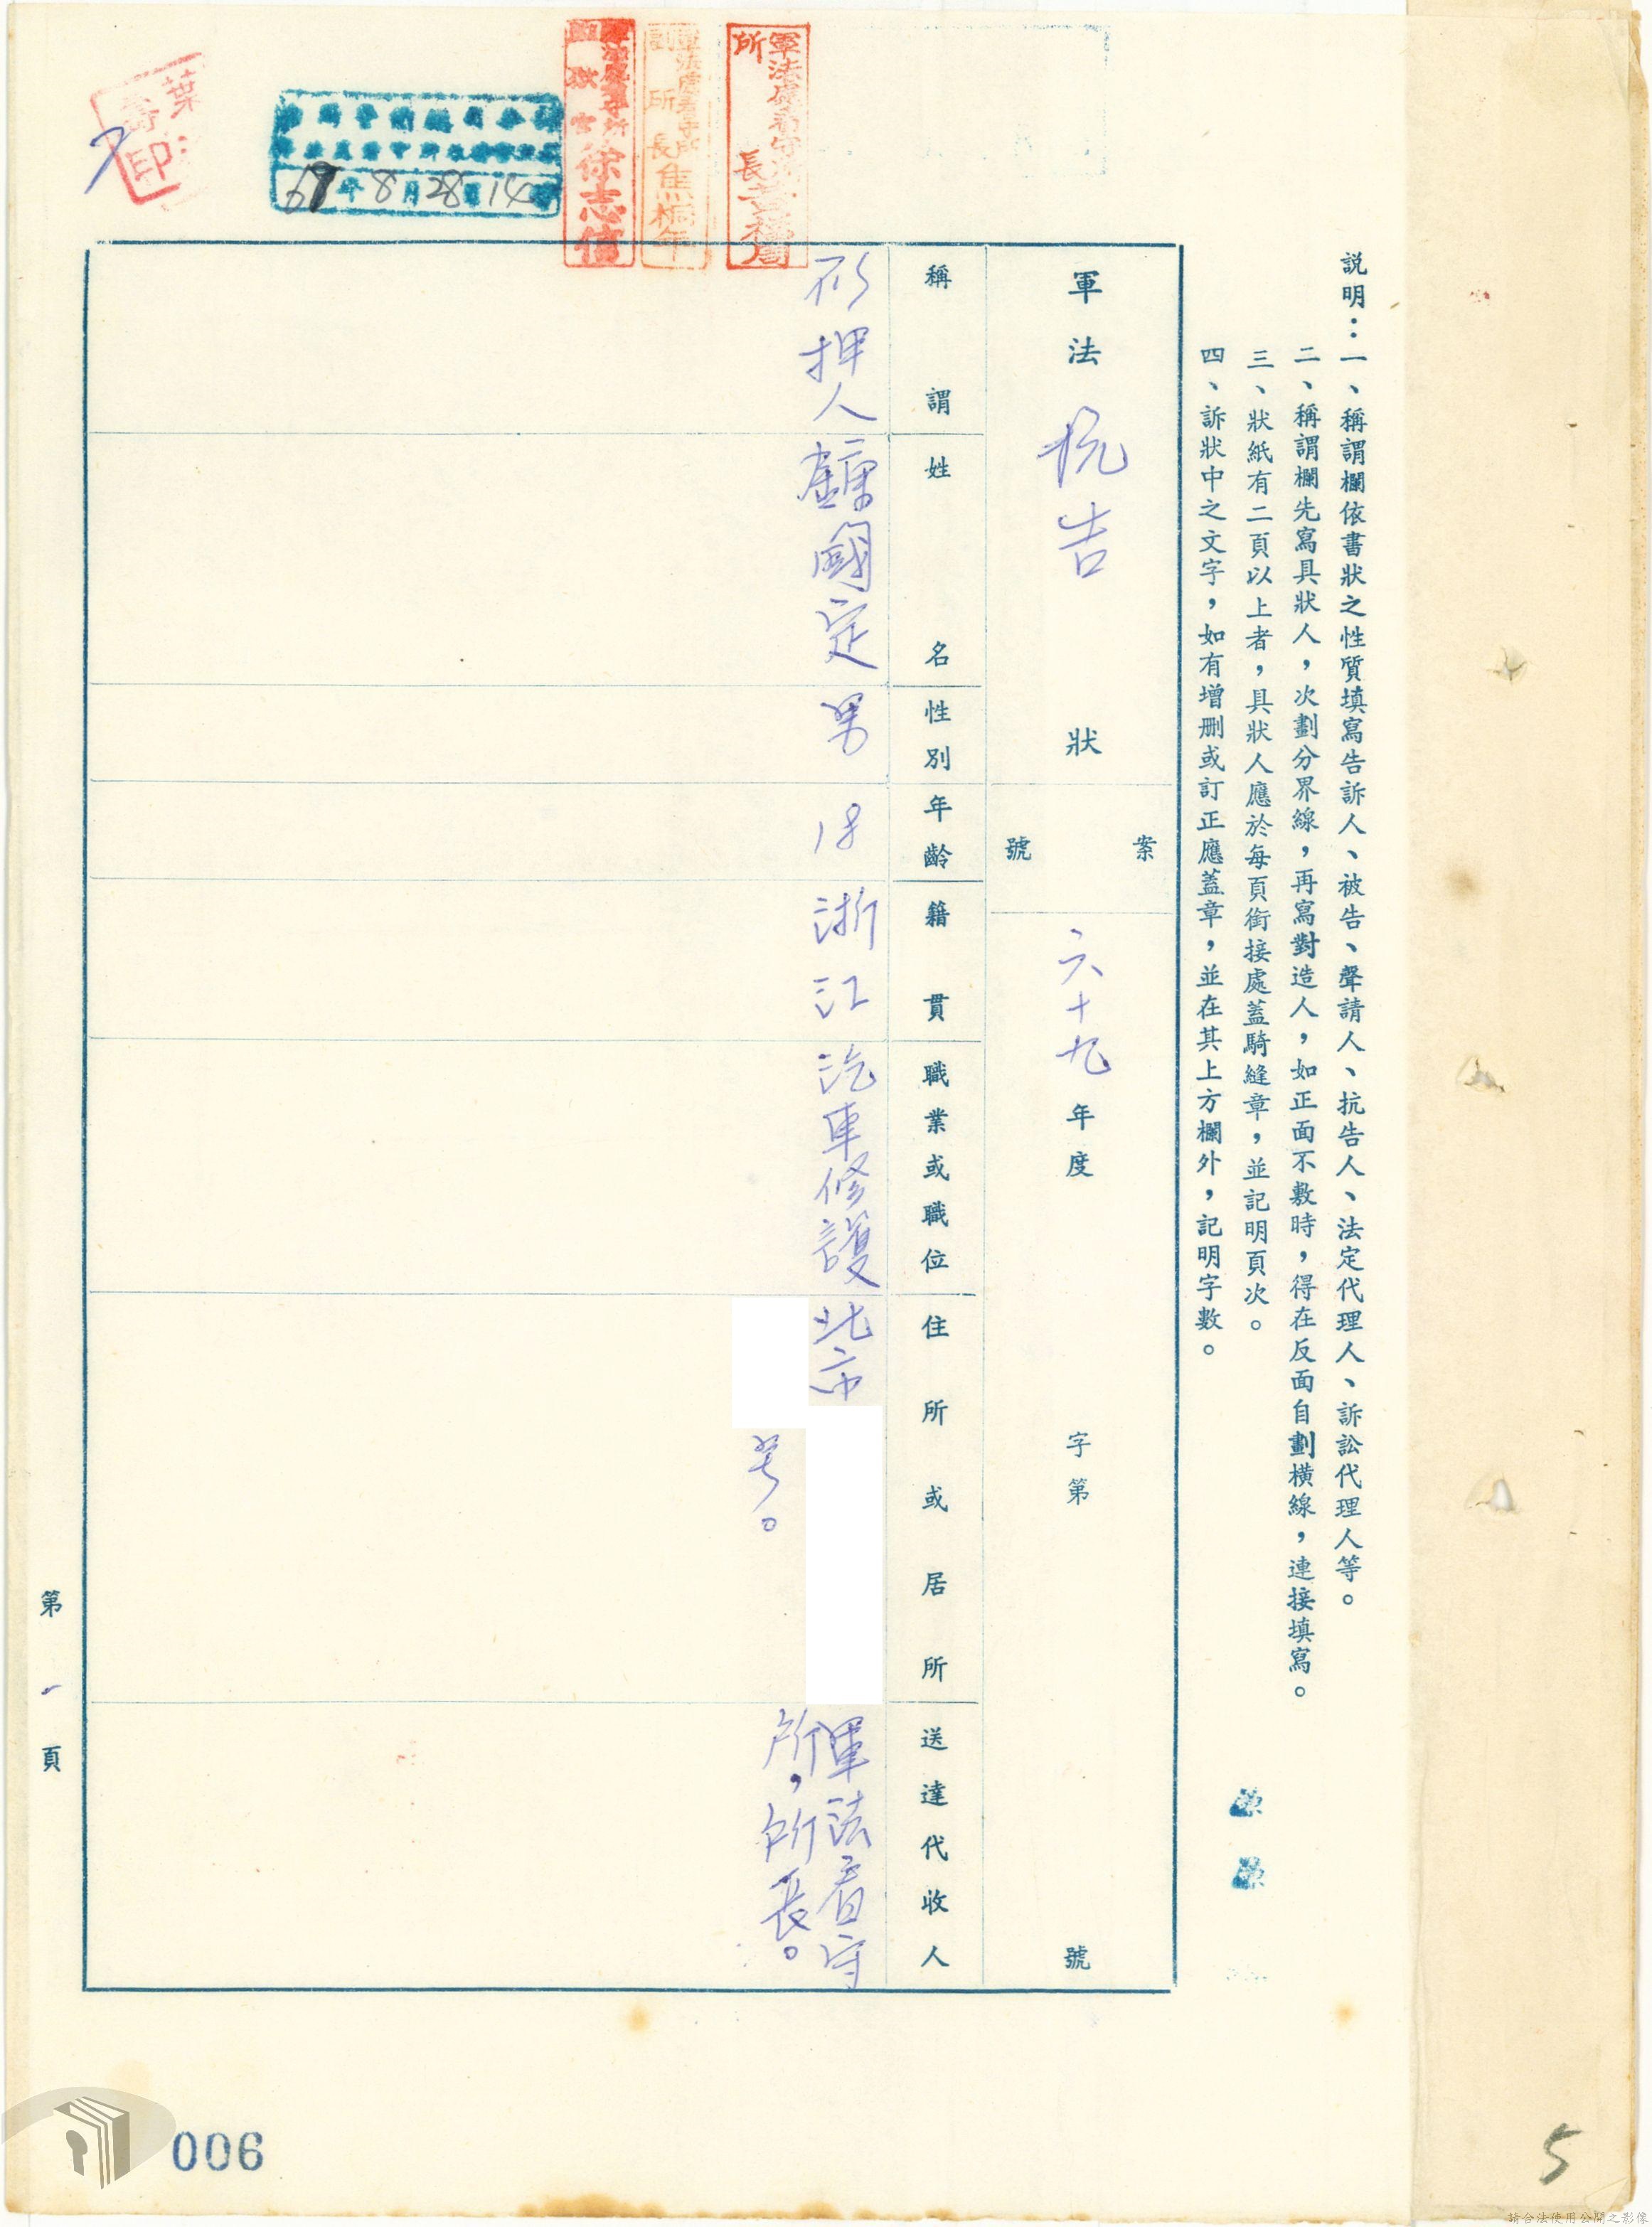 說明：一、稱謂欄依書狀之性質填寫告訴人、被告、聲請人、抗告人、法定代理人、訴訟代理人等。
二、稱謂欄先寫具狀人，次劃分界線，再寫對造人，如正面不敷時，得在反面自劃橫線，連接填寫。
三、狀紙有二頁以上者，具狀人應於每頁銜接處蓋騎縫章，並記明頁次。
四、訴狀中之文字，如有增刪或訂正應蓋章，並在其上方欄外，記明字數。
軍法抗告狀
案號
六十九年度 字第 號
稱謂
姓名
性別
年齡
籍貫
職業或職位
住所或居所
送達代收人
押人
國定
男
18
浙江
汽車修護
北市
号。
軍法看守
所，所長。
軍法處看守所
所長
軍法處看守所
副所長焦桐年
軍法處看守所
徐志值
69年8月28日14
葉
印
第一頁
006
5
請合法使用公開之影像